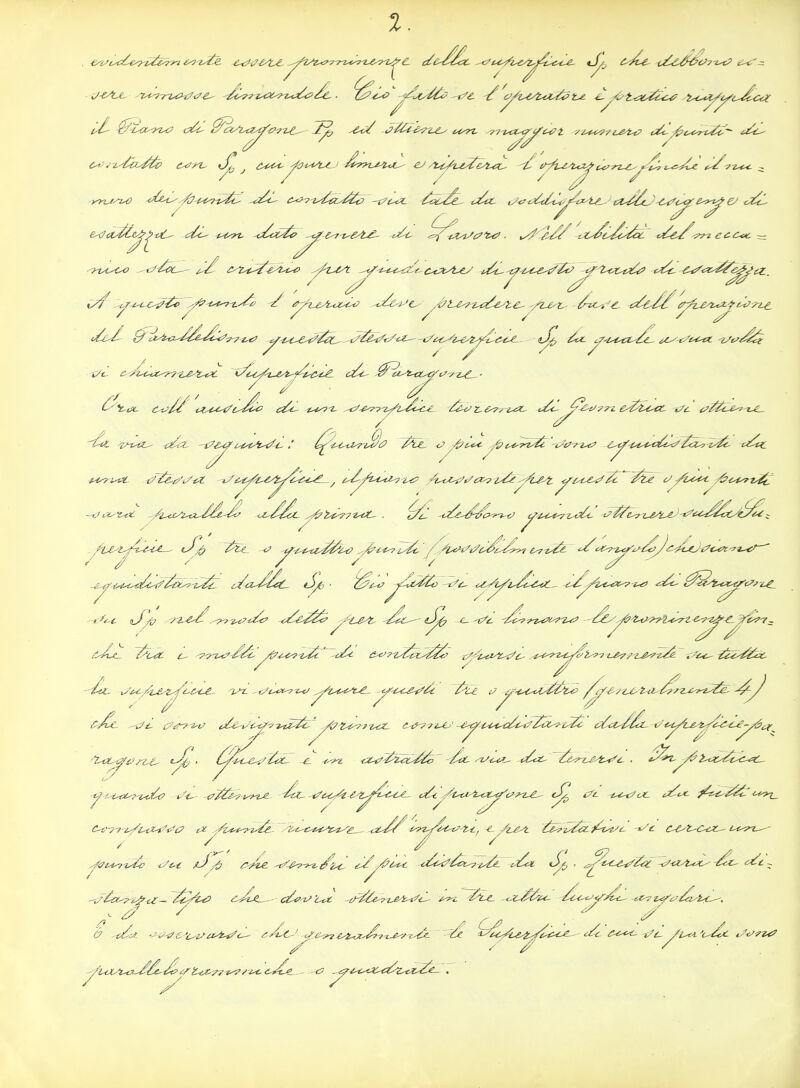 2.
evidentemente essere prominenze della superficie Sp che debbono es=
sere rimosse limandole. Ciò fatto se l'operatore è pratico riapplica
il Piano di Paragone Pp ed ottiene un maggior numero di punti di
contatto con Sp, cui pure limerà e ripeterà l'operazione finchè il nu=
mero dei punti di contatto sia tale da soddisfare alle esigenze di
esattezza di un dato genere di Lavoro. Nell'abilità del mecca=
nico sta il criterio per giudicare di questo grado di esattezza.
A questo punto l'operaio deve prendere per base dell'operazione
del Parallelismo questa stessa superficie Sp la quale a sua volta
si chiamerà Superficie di Paragone.
Ora coll'ausilio di un semplice teorema di Geometria si ottiene
la via da seguirsi: Quando tre o più punti sono equidistanti da
una stessa superficie, il piano passante per questi tre o più punti
sarà parallelo alla prima. Si debbono quindi ottenere sulla Su=
perficie S'p tre o quattro punti (possibilmente d'angolo) che siano
equidistanti dalla Sp. Ciò fatto si applica il piano di Paragone
su S'p nel modo detto per la Sp e si limano le prominenze fin=
chè tra i molti punti di contatto sparsi uniformemente su tutta
la superficie vi siano pure questi tre o quattro (generalmente 4)
che si sono designati prima come equidistanti dalla superficie-pa=
ragone Sp. Questa è in astratto la via da tenersi. In pratica
quando si ottenne la superficie di paragone Sp si usa da tutti un
compasso a punte ricurve all'infuori, e per tentativi si cerca un
punto su S'p che sembri il più distante da Sp. Questa sarà la di=
stanza-tipo che dovrà ottenersi in tre altri luoghi angolari.
È da osservarsi che generalmente le Superficie di cui si parla sono
parallelogrammiche o quadrate.